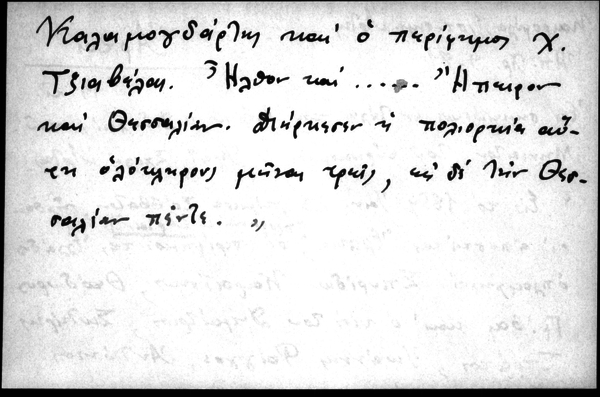 Καλαμογδάρτης καί ὁ περίφημος Χ.
Τζιαβέλας. Ἦλθον καί ...... Ἤπειρον
καί Θεσσαλίαν. Διήρκεσεν ἡ πολιορκία αὕ-
τη ὁλόκληρους μῆνας τρεῖς, εἰς δέ τήν Θεσ-
σαλίαν πέντε. "